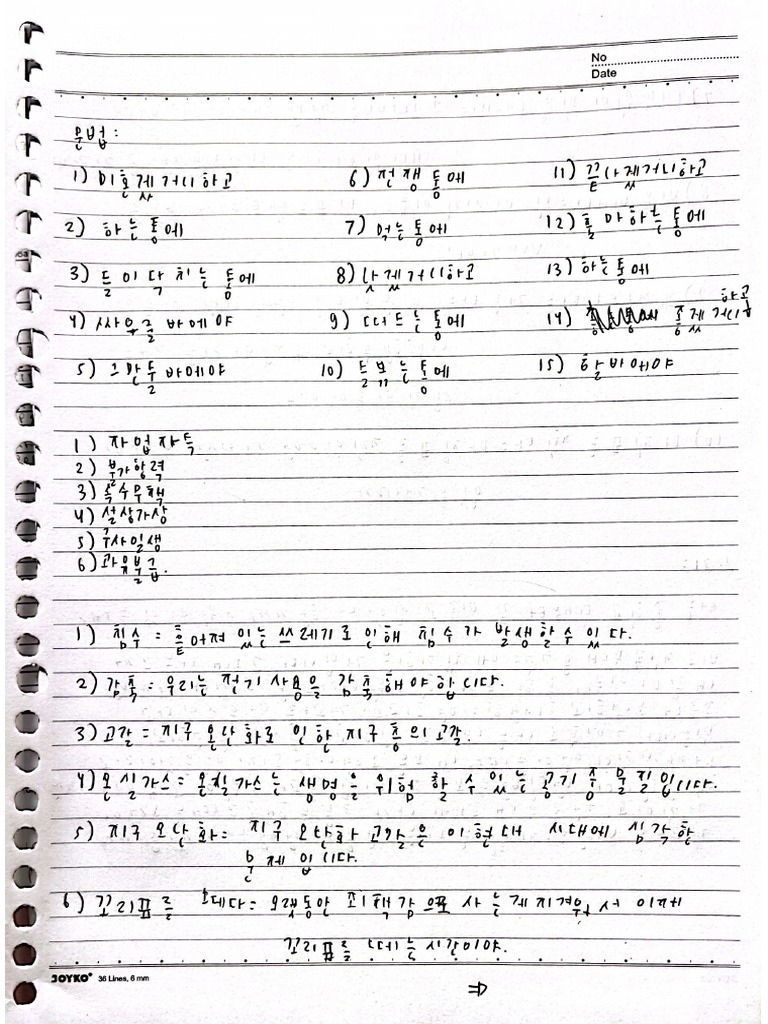 No
Date
문법:
1) 미혼게거니하고 6) 전쟁통에 11) 끈나게거니하고
2) 하는통에 7) 먹는통에 12)
3) 들이닥치는 통에 8) 13) 하는통에
4) 싸우를 바에야 9) 떠드는통에 14)
5) 그만둘바에야 10) 들볶는통에 15) 할바에야
1) 자업자득
2) 부가항력
3) 속수무책
4) 설상가상
5) 구사일생
6) 과유불급.
1) 침수 = 흩어져 있는 쓰레기로 인해 침수가 발생할 수 있다.
2) 감축 = 우리는 전기 사용을 감축해야 합니다.
3) 고갈 = 지구 온난화로 인한 지구 층의 고갈.
4) 온실가스 = 온실가스는 생명을 위험할 수 있는 공기 중 물질입니다.
5) 지구 온난화 = 지구 온난화 고갈은 이 현대 시대에 심각한
문제 입니다.
6) 꼬리표를 떼다 = 오랫동안 죄책감으로 사는 게 지겨워서 이제
꼬리표를 떼는 시간이야.
JOYKO 36 Lines, 6 mm